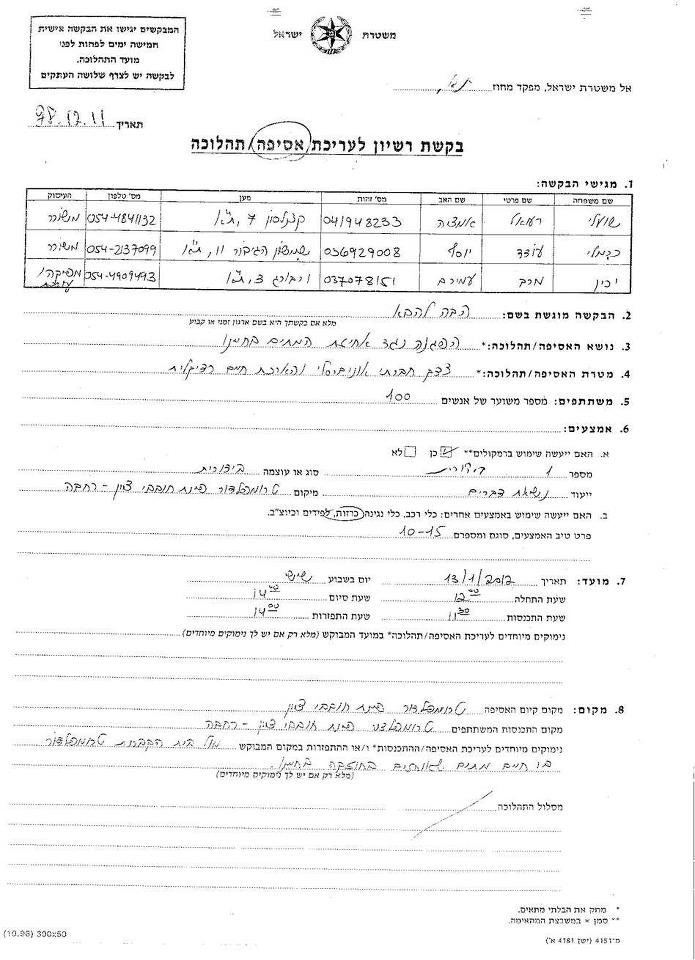 המבקשים יגישו את הבקשה אישית
חמישה ימים לפחות לפני
מועד התהלוכה.
לבקשה יש לצרף שלושה העתקים
משטרת ישראל
אל משטרת ישראל, מפקד מחוז ת"א
תאריך 28.12.11
בקשת רשיון לעריכת אסיפה/תהלוכה
1. מגישי הבקשה:
שם משפחה שם פרטי שם האב מס' זהות מען מס' טלפון העיסוק
שועלי רעואל 041948233 קצנלסון 7, ת"א 054-4841132 משורר
כרמלי עודד יוסף 036929008 שמשון הגיבור 11, ת"א 054-2137099 משורר
יכין מרב עמירם 037078151 ורבורג 3, ת"א 054-4909493 מפיקה/עורכת
2. הבקשה מוגשת בשם: הבה להבא
מלא אם בקשתך היא בשם ארגון זמני או קבוע
3. נושא האסיפה/תהלוכה:* הפגנה נגד אחיזת המתים בחיינו
4. מטרת האסיפה/תהלוכה:* צדק חברתי אוניברסלי והארכת חיים רדיקלית
5. משתתפים: מספר משוער של אנשים 100
6. אמצעים:
א. האם ייעשה שימוש ברמקולים** כן לא
מספר 1 סוג או עוצמה בידורית
ייעוד נשיאת דברים מיקום טרומפלדור פינת חובבי ציון - רחבה
ב. האם ייעשה שימוש באמצעים אחרים: כלי רכב, כלי נגינה, כרזות, לפידים וכיוצ"ב.
פרט טיב האמצעים, סוגם ומספרם 10-15
7. מועד: תאריך 13/1/2012 יום בשבוע שישי
שעת התחלה 12 00 שעת סיום 14 00
שעת התכנסות 11 30 שעת התפזרות 14 00
נימוקים מיוחדים לעריכת האסיפה/תהלוכה* במועד המבוקש (מלא רק אם יש לך נימוקים מיוחדים)
8. מקום: מקום קיום האסיפה טרומפלדור פינת חובבי ציון
מקום התכנסות המשתתפים טרומפלדור פינת חובבי ציון - רחבה
נימוקים מיוחדים לעריכת האסיפה/ההתכנסות* ו/או ההתפזרות במקום המבוקש מול בית הקברות טרומפלדור
בו חיים מתים שאוחזים בחוזקה בחיינו.
(מלא רק אם יש לך נימוקים מיוחדים)
מסלול התהלוכה
* מחק את הבלתי מתאים.
** סמן × במשבצת המתאימה.
מ-4151 (ישן 4181 א')
(10.96) 300x50